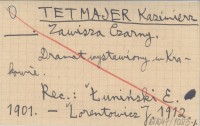 TETMAJER Kazimierz
Zawisza Czarny.
Dramat wystawiony w Kra-
kowie.
Rec.: Łuniński E.
1901. – Lorentowicz J. 1912